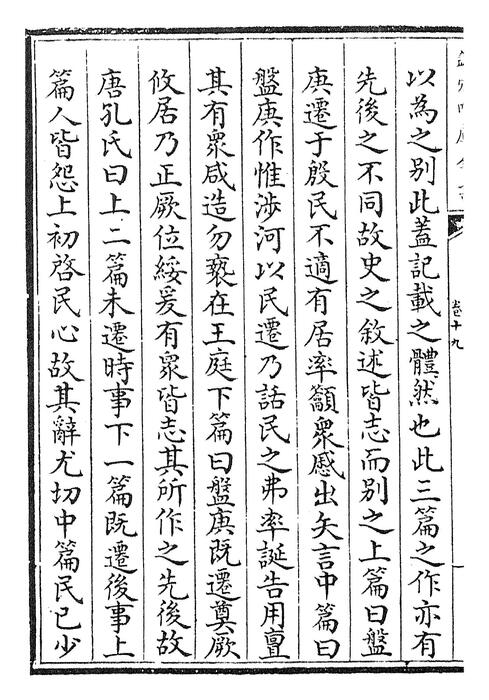 以為之别此蓋記載之體然也此三篇之作亦有
先後之不同故史之敘述皆志而别之上篇曰盤
庚遷于殷民不適有居率籲衆慼出矢言中篇曰
盤庚作惟涉河以民遷乃話民之弗率誕告用亶
其有衆咸造勿䙝在王庭下篇曰盤庚既遷奠厥
攸居乃正厥位綏爰有衆皆志其所作之先後故
唐孔氏曰上二篇未遷時事下一篇既遷後事上
篇人皆怨上初啓民心故其辭尤切中篇民已少
卷十九